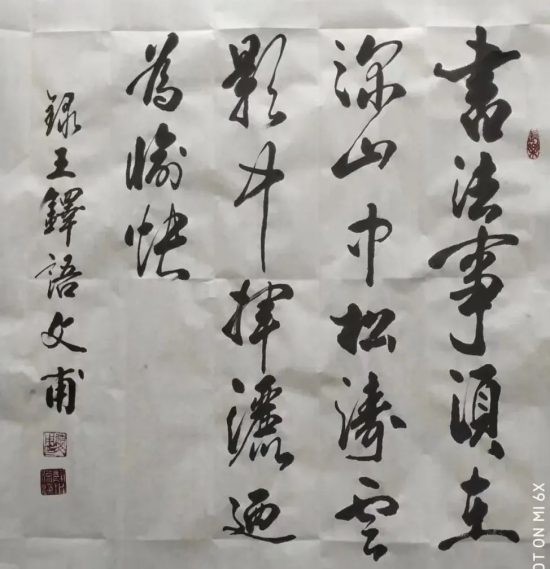 書法事須在
深山中松濤雲
影中揮灑迺
為愉快
録王鐸語文甫
OT ON MI 6X